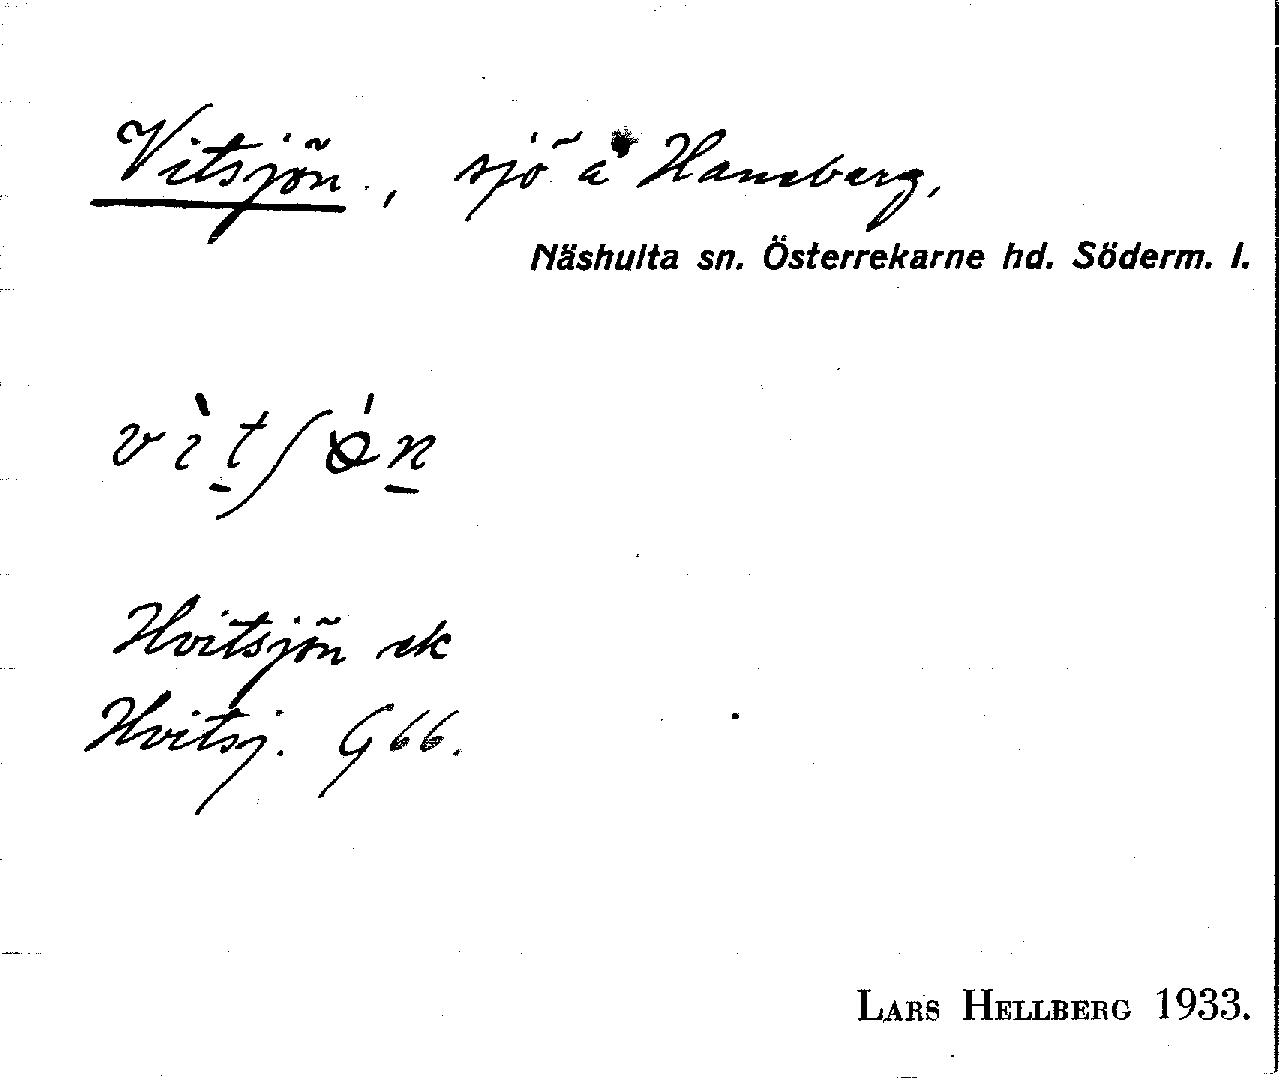 Vitsjön, sjö å Haneberg,
Näshulta sn. Österrekarne hd. Söderm. l.
vìtʃǿn
Hvitsjön ek
Hvitsj. G 66.
LARS HELLBERG 1933.